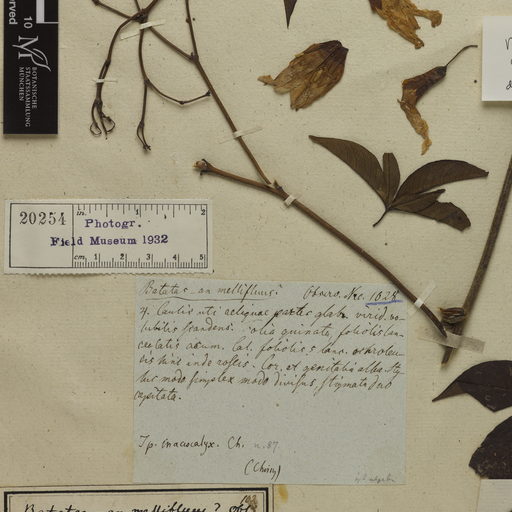 served
10
BOTANISCHE
STAATSSAMMLUNG
MÜNCHEN
20254
in. 1 2
Photogr.
Field Museum 1932
cm. 1 2 3 4 5
Batatas - an mellifleus? Observ. No. 1028
Caulis uti reliquae partes glab. virid. vo-
lubilis scandens. folia quinata, foliolis lan-
ceolatis acum. Cal. foliolis 5 lanc. ochroleu-
cis hinc inde roseis. Cor. et genitalia alba. Sty-
lus modo simplex modo divisus, stigmata duo
capitata.
Ip. macrocalyx. Ch. n. 87.
(Choisy)
Batatas - an mellifleus? Obs